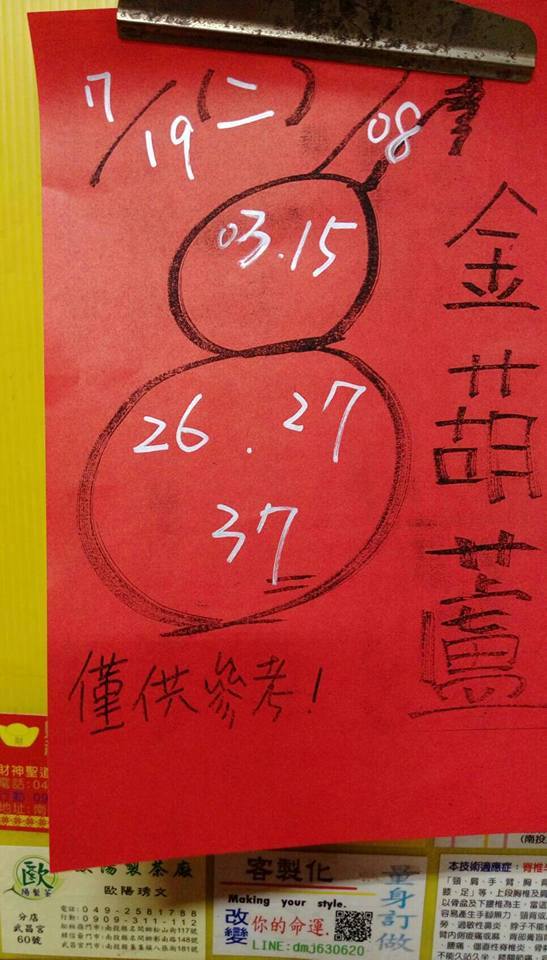 7/19 (二)
08
03.15
26.27
37
金葫蘆
僅供參考!
財神聖道
電話:04
地址:南
歐
陽製茶
歐陽製茶廠
歐陽琇文
分店
武昌宮
60號
電話:049-2581788
行動:0909-311-112
客製化
Making your style.
改變
你的命運.
LINE:dmj630620
量身訂做
(南投
本技術適應症:脊椎
「頭、肩、手、臂、胸、
膝、足」等,上段胸椎及肩